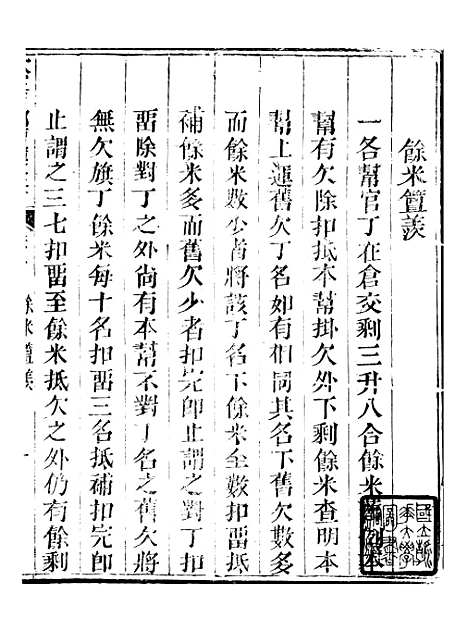 餘米簠羨
一各幫官丁在倉交剩三升八合餘米
幫有欠除扣抵本幫掛欠外下剩餘米查明本
幫上運舊欠丁名如有相同其名下舊欠數多
而餘米數少者將該丁名下餘米全數扣畱抵
補餘米多而舊欠少者扣完即止謂之對丁扣
畱除對丁之外尚有本幫不對丁名之舊欠將
無欠旗丁餘米每十名扣畱三名抵補扣完即
止謂之三七扣畱至餘米抵欠之外仍有餘剩
餘米簠羨